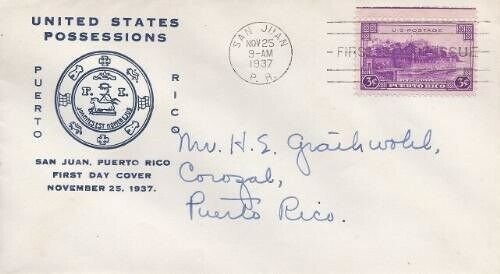 UNITED STATES
POSSESSIONS
PUERTO
RICO
F. I.
JOANNES EST NOMEN EJUS
SAN JUAN, PUERTO RICO
FIRST DAY COVER
NOVEMBER 25, 1937.
SAN JUAN
NOV 25
9-AM
1937
P. R.
FIRST ISSUE
U.S. POSTAGE
3¢ 3¢
PUERTO RICO
Mr. H. S.
Corozal,
Puerto Rico.